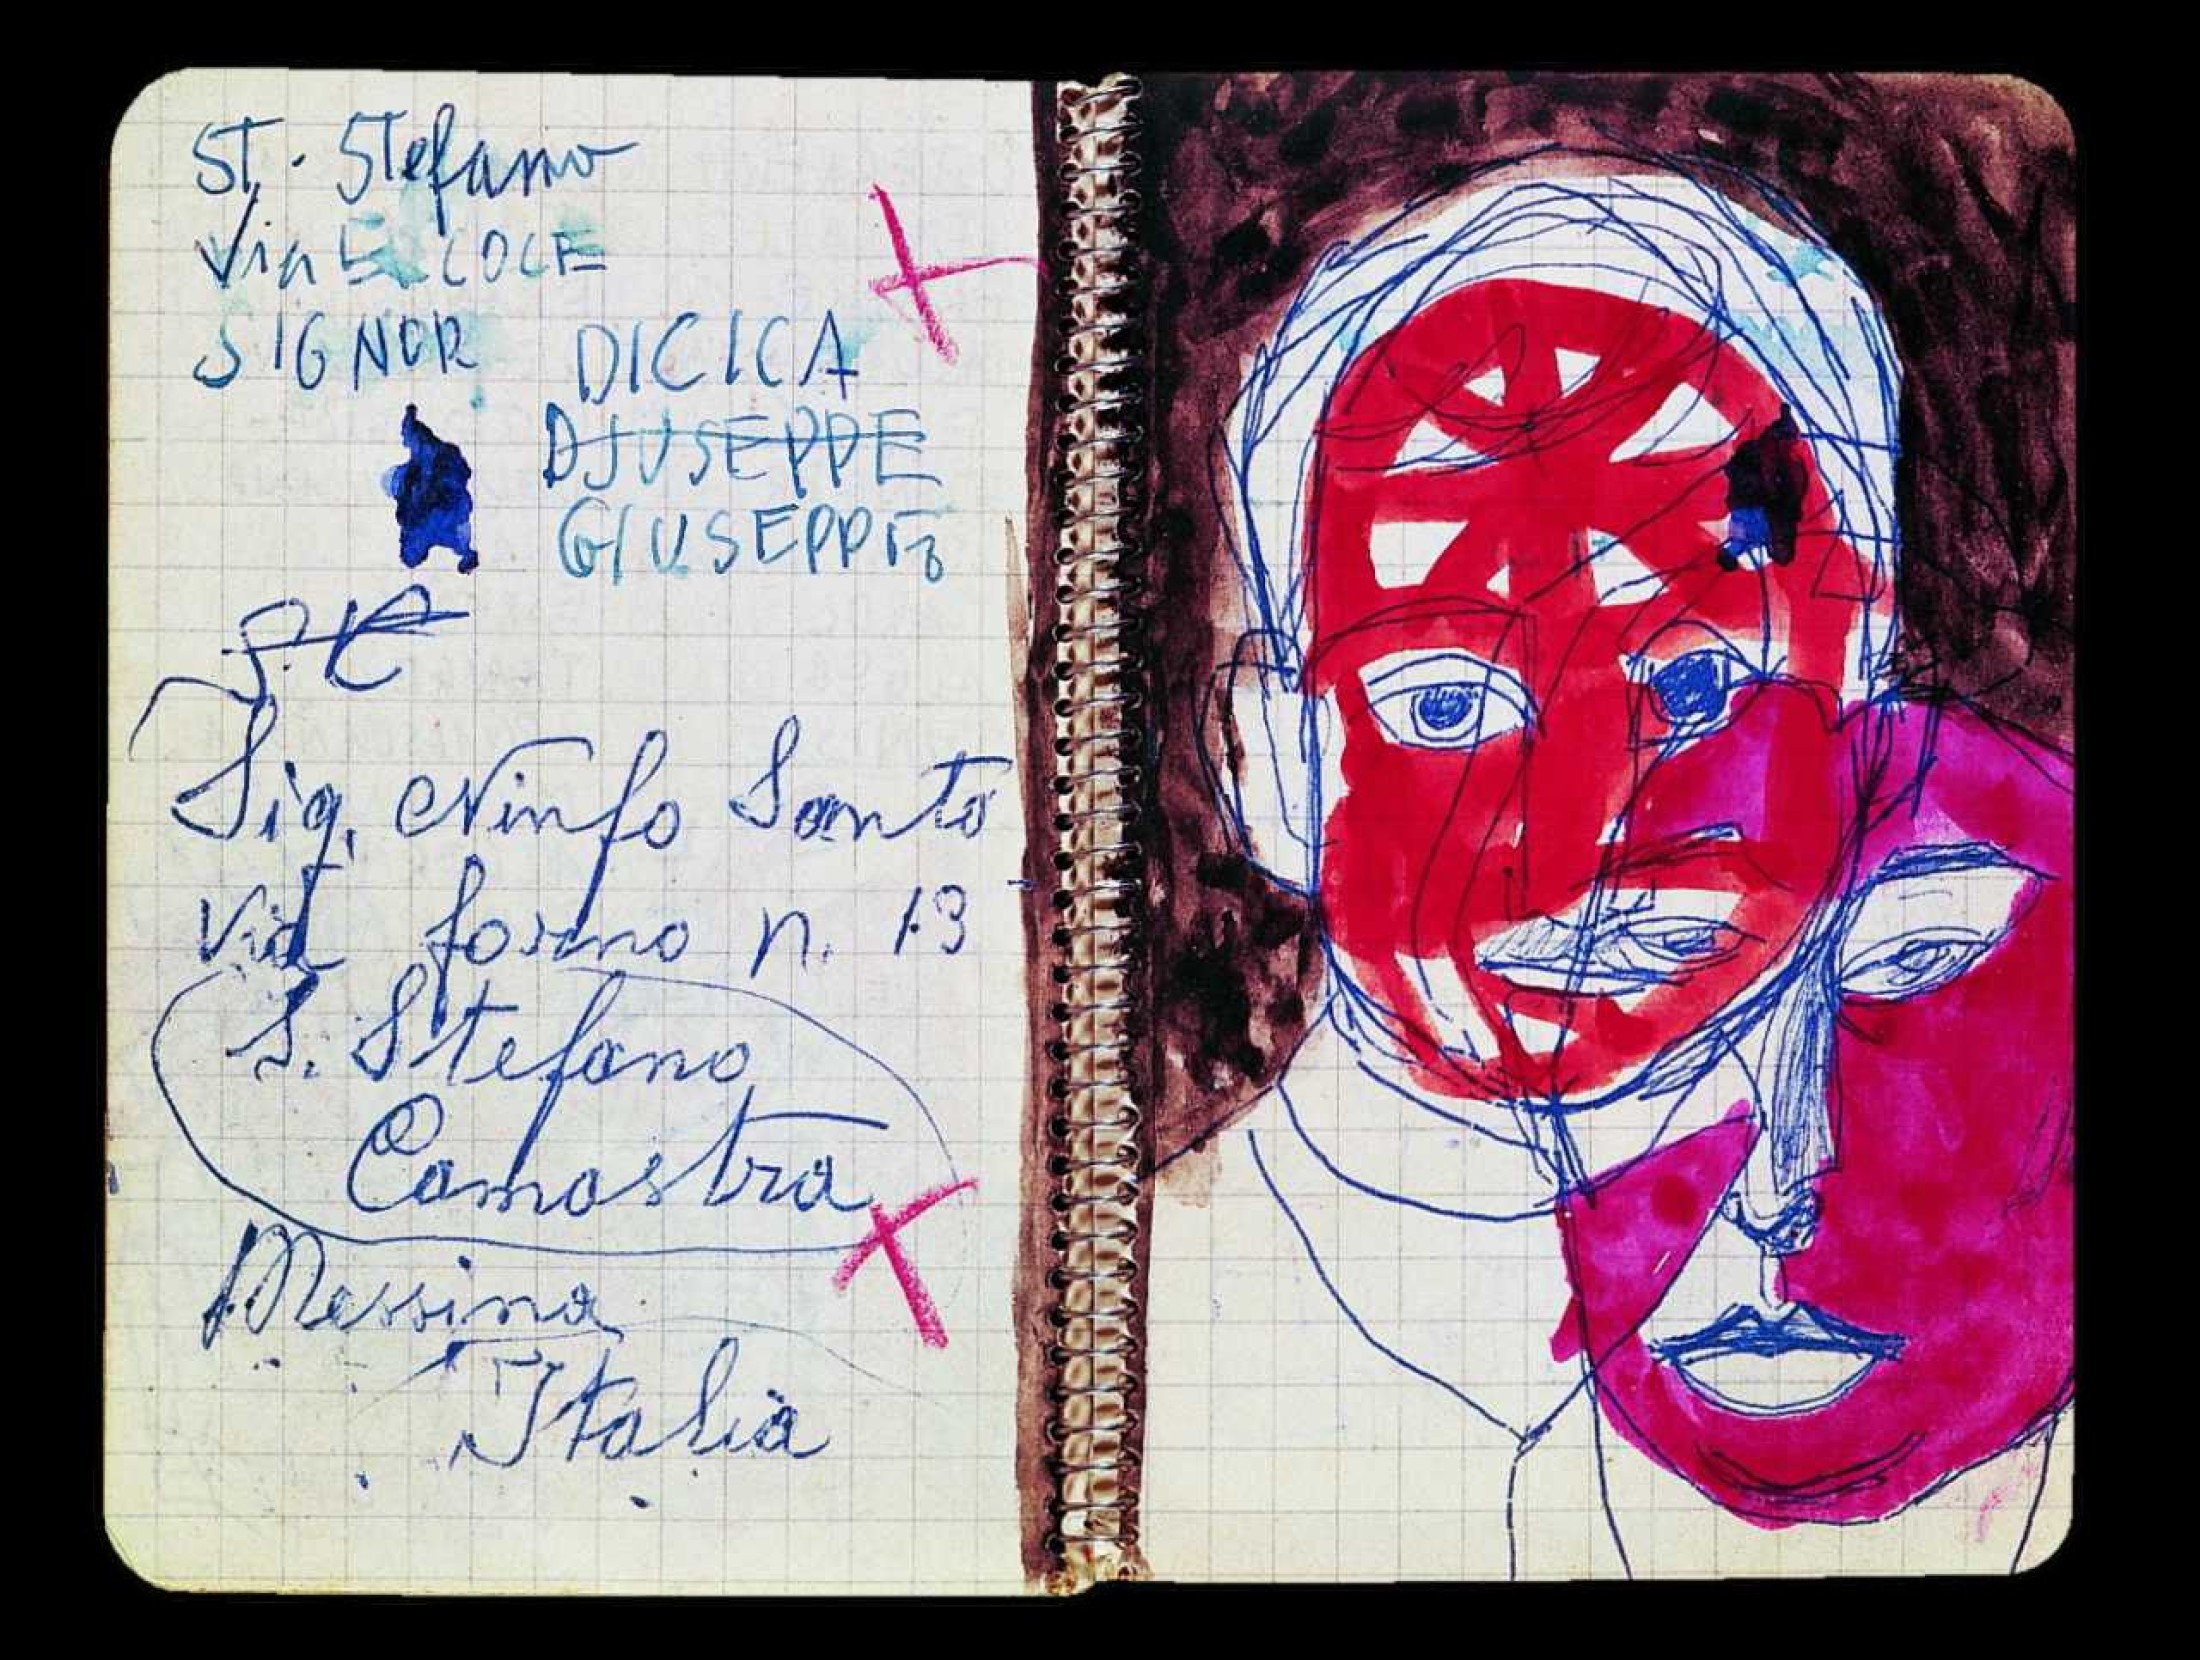 ST. Stefano
Via
SIGNOR DICICA
DJUSEPPE
GIUSEPPE
Sig. Ninfo Santo
Via forno n. 13
S. Stefano
Camastra
Messina
Italia